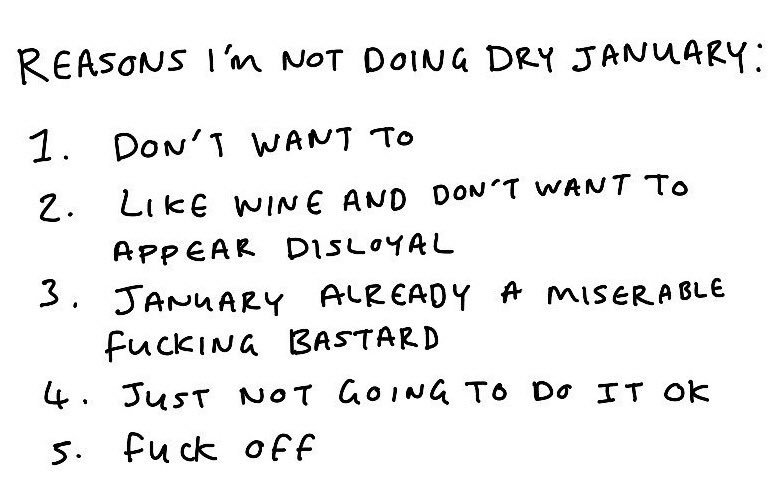 REASONS I'M NOT DOING DRY JANUARY:
1. DON'T WANT TO
2. LIKE WINE AND DON'T WANT TO
APPEAR DISLOYAL
3. JANUARY ALREADY A MISERABLE
FUCKING BASTARD
4. JUST NOT GOING TO DO IT OK
5. FUCK OFF